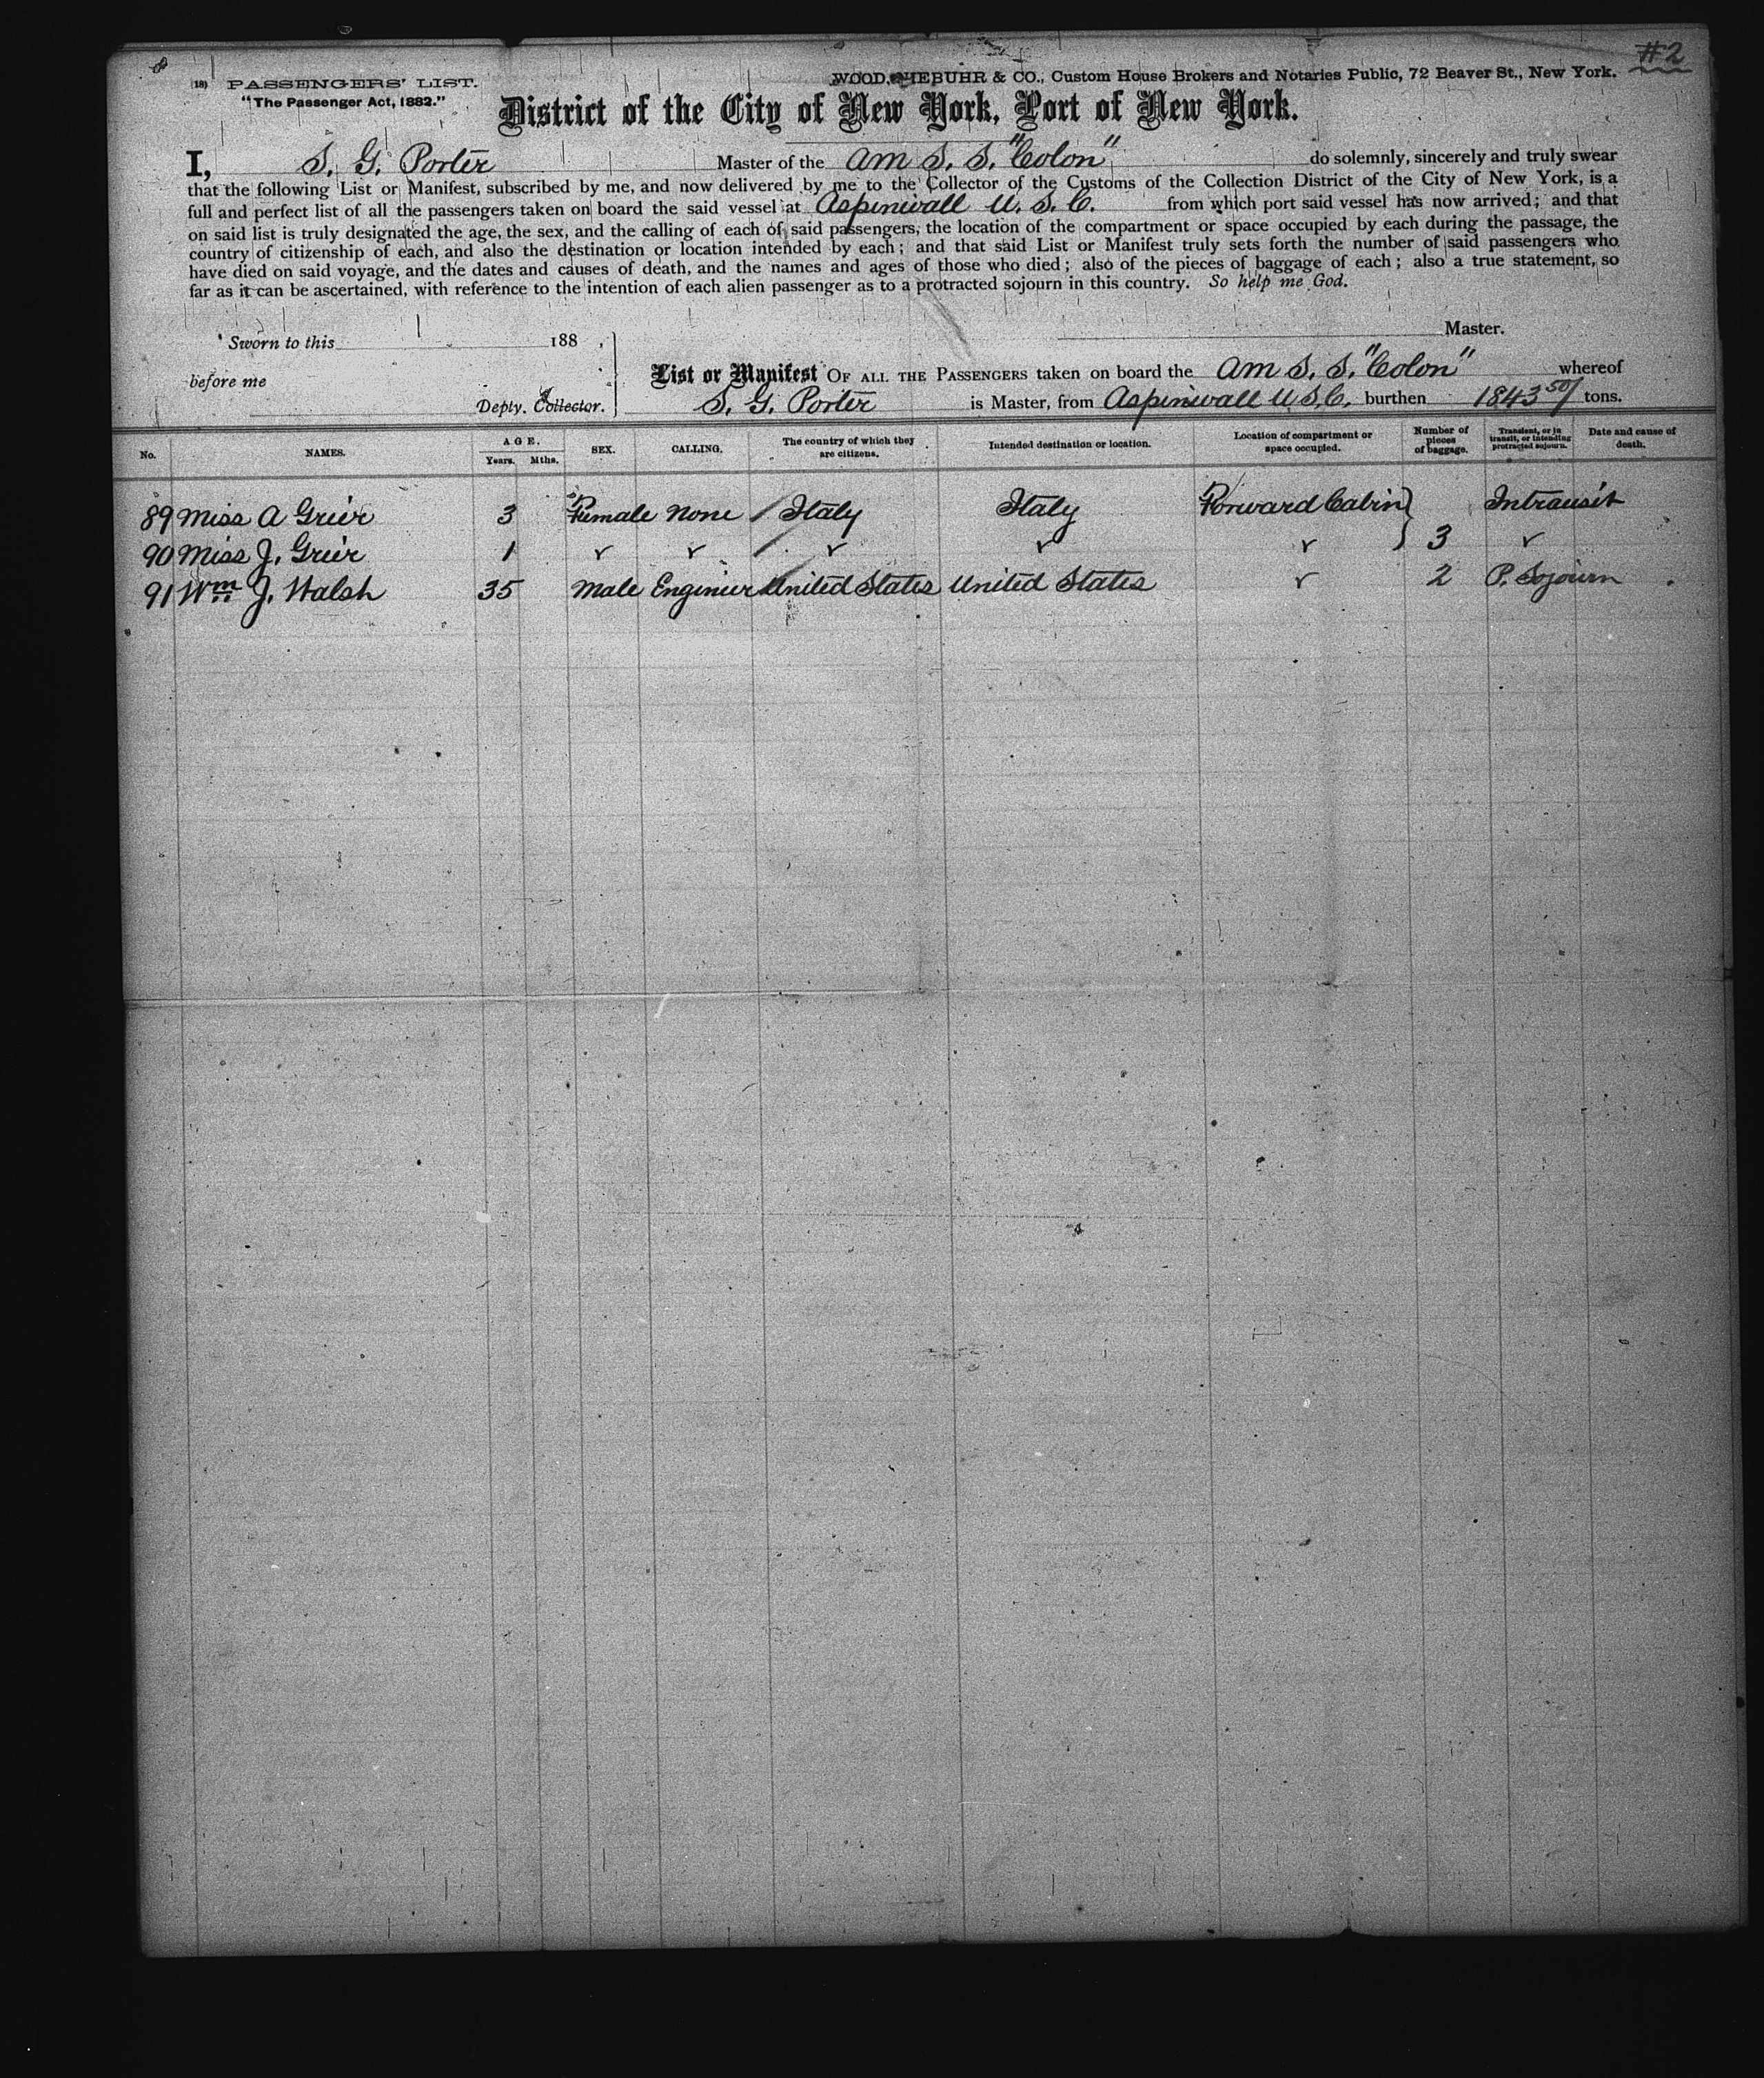 #2
(18) PASSENGERS' LIST. WOOD, NIEBUHR & CO., Custom House Brokers and Notaries Public, 72 Beaver St., New York.
"The Passenger Act, 1882."
District of the City of New York, Port of New York.
I, S. G. Porter Master of the Am S. S. "Colon" do solemnly, sincerely and truly swear
that the following List or Manifest, subscribed by me, and now delivered by me to the Collector of the Customs of the Collection District of the City of New York, is a
full and perfect list of all the passengers taken on board the said vessel at Aspinwall U. S. C. from which port said vessel has now arrived; and that
on said list is truly designated the age, the sex, and the calling of each of said passengers, the location of the compartment or space occupied by each during the passage, the
country of citizenship of each, and also the destination or location intended by each; and that said List or Manifest truly sets forth the number of said passengers who
have died on said voyage, and the dates and causes of death, and the names and ages of those who died; also of the pieces of baggage of each; also a true statement, so
far as it can be ascertained, with reference to the intention of each alien passenger as to a protracted sojourn in this country. So help me God.
Master.
Sworn to this 188 ,
before me
Depty. Collector.
List or Manifest OF ALL THE PASSENGERS taken on board the Am S. S. "Colon" whereof
S. G. Porter is Master, from Aspinwall U.S.C. burthen 1843 50/ tons.
No. NAMES. AGE. Years. Mths. SEX. CALLING. The country of which they are citizens. Intended destination or location. Location of compartment or space occupied. Number of pieces of baggage. Transient, or in transit, or intending protracted sojourn. Date and cause of death.
89 Miss A Grier 3 Female None Italy Italy Forward Cabin Intransit
90 Miss J. Grier 1 " " " " " 3 "
91 Wm J. Walsh 35 Male Engineer United States United States " 2 P. Sojourn